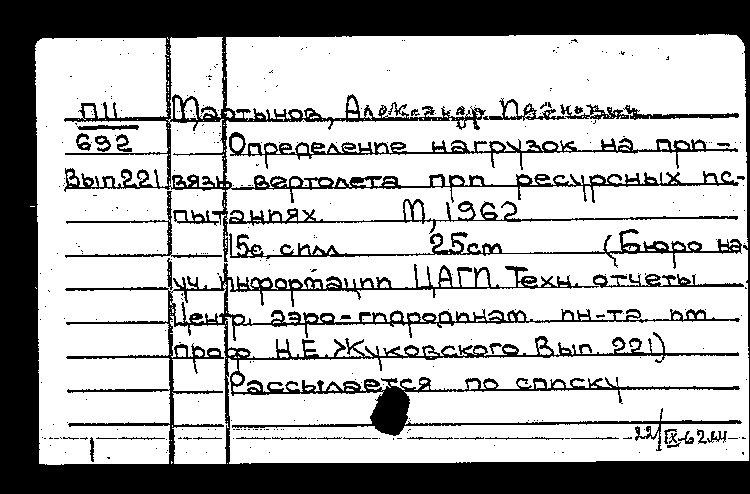 П11 Мартынов, Александр
692 Определение нагрузок на при-
Вып.221 вязь вертолета при ресурсных ис-
пытаниях. М, 1962
15с, силл 25cm (Бюро на-
уч. информации ЦАГИ. Техн. отчеты
Центр. аэро-гидродинам. ин-та им.
проф. Н.Е. Жуковского. Вып. 221)
Рассылается по списку
22/IX-62
1.